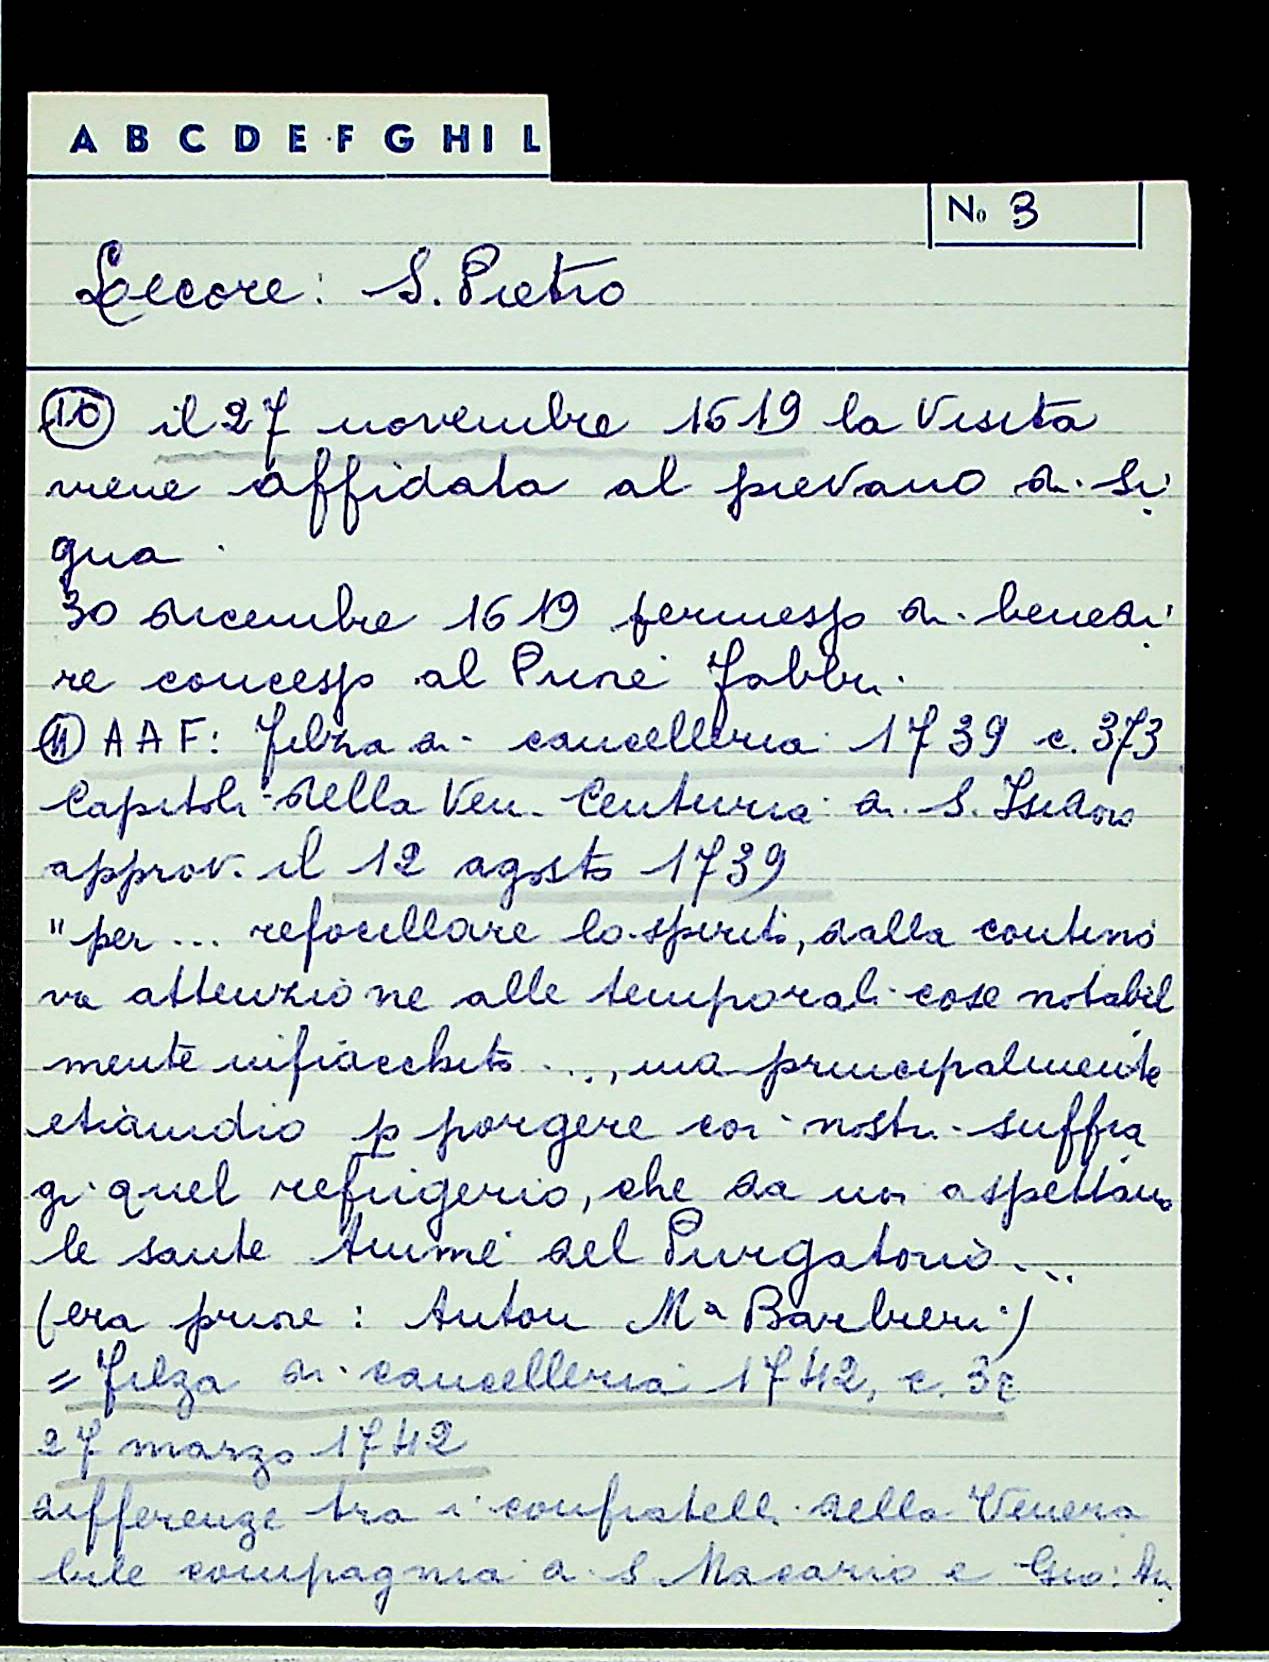 A B C D E F G H I L
No 3
Lecore: S. Pietro
(10) il 27 novembre 1619 la Visita
viene affidata al pievano di Si
gna
30 dicembre 1619 permesso di benedi
re concesso al Priore Fabbri
(11) AAF: Filza di cancelleria 1739 c. 373
Capitoli della Ven. Centuria di S. Isidoro
approv. il 12 agosto 1739
"per ... refocillare lo spirito, dalla contino
va attenzione alle temporali cose notabil
mente infiacchito ..., ma principalmente
etiandio p porgere coi nostri suffra
gi quel refrigerio, che da noi aspettano
le sante Anime del Purgatorio ...
(era priore: Anton Mª Barbieri)
= Filza di cancelleria 1742, c.
27 marzo 1742
differenze tra i confratelli della Venera
bile compagnia di S Macario e Gio: An